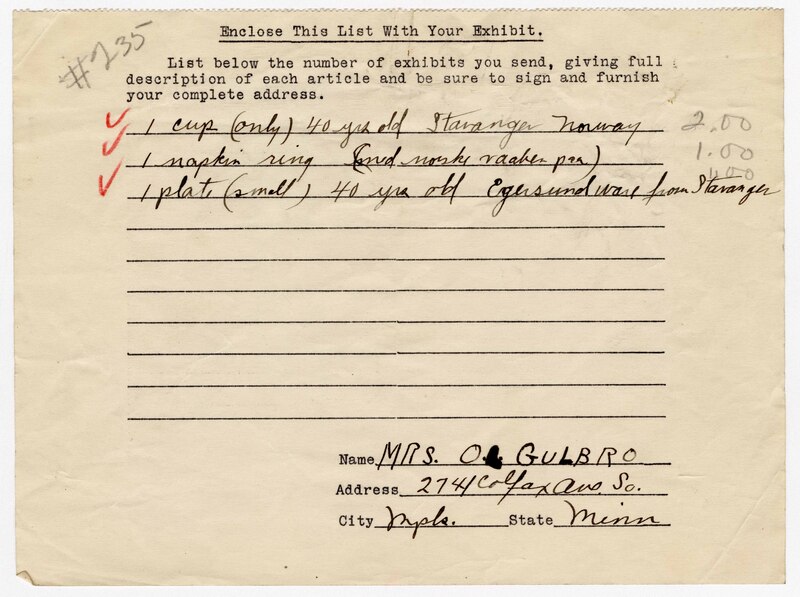 #235
Enclose This List With Your Exhibit.
List below the number of exhibits you send, giving full
description of each article and be sure to sign and furnish
your complete address.
1 cup (only) 40 yrs old Stavanger Norway 2.00
1 napkin ring (med norske vaaben paa) 1.00
1 plate (small) 40 yrs old Egersund ware from Stavanger 1.00
Name MRS. O. GULBRO
Address 2741 Colfax Ave. So.
City Mpls. State Minn